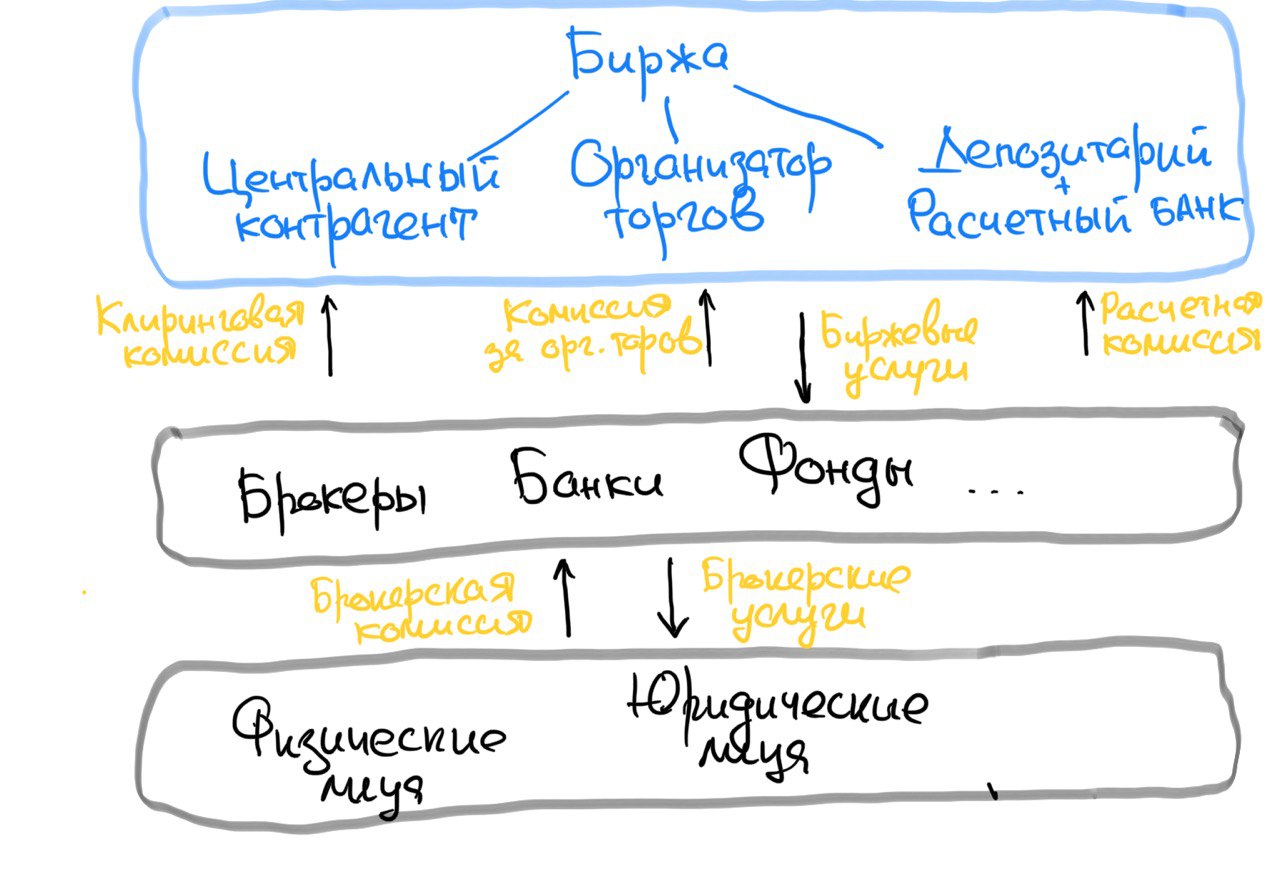 Биржа
Центральный
контрагент
Организатор
торгов
Депозитарий
+
Расчетный БАНК
Клиринговая
комиссия
Комиссия
за орг. торов
Биржевые
услуги
Расчетная
комиссия
Брокеры
Банки
Фонды
...
Брокерская
комиссия
Брокерские
услуги
Физические
лица
Юридические
лица